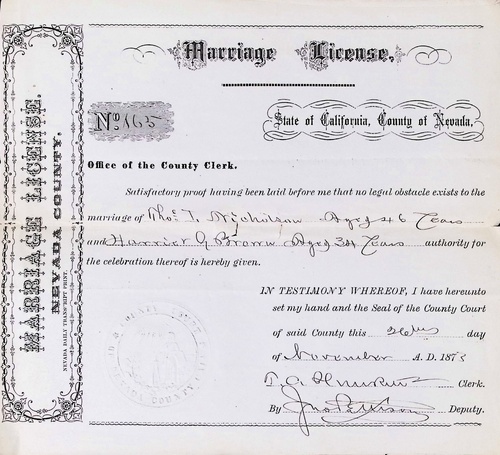 Marriage License.
No. 165
State of California, County of Nevada,
Office of the County Clerk.
Satisfactory proof having been laid before me that no legal obstacle exists to the
marriage of Thos. T. Nicholson Aged 46 Years
and Harriet G Brown Aged 34 Years authority for
the celebration thereof is hereby given.
IN TESTIMONY WHEREOF, I have hereunto
set my hand and the Seal of the County Court
of said County this day
of November A. D. 187
Clerk.
By Jno Pattison Deputy.
MARRIAGE LICENSE.
NEVADA COUNTY.
NEVADA DAILY TRANSCRIPT PRINT.